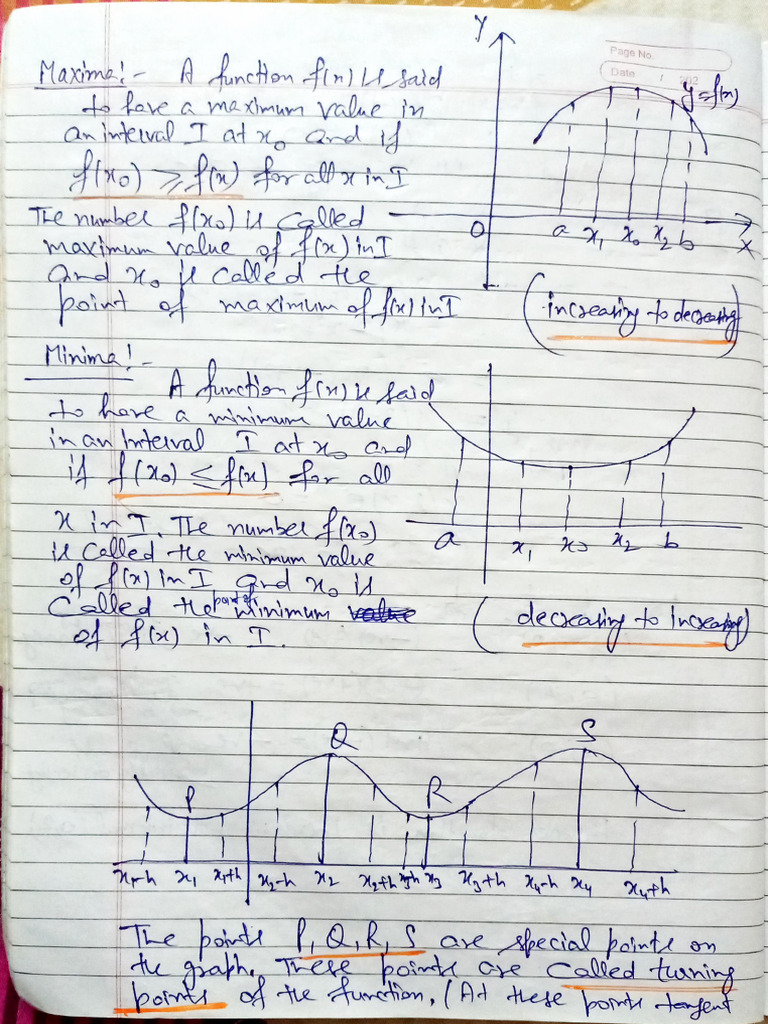 Page No.
Date / 202
Maxima!- A function f(x) is said
to have a maximum value in
an interval I at x₀ and if
f(x₀) ⩾ f(x) for all x in I
The number f(x₀) is called
maximum value of f(x) in I
and x₀ is called the
point of maximum of f(x) in I
Y
y=f(x)
O a x₁ x₀ x₂ b X
(increasing to decreasing)
Minima!-
A function f(x) is said
to have a minimum value
in an interval I at x₀ and
if f(x₀) ≤ f(x) for all
x in I. The number f(x₀)
is called the minimum value
of f(x) in I and x₀ is
called the point of minimum value
of f(x) in I.
a x₁ x₀ x₂ b
(decreasing to increasing)
P Q R S
x₁-h x₁ x₁+h x₂-h x₂ x₂+h x₃-h x₃ x₃+h x₄-h x₄ x₄+h
The points P, Q, R, S are special points on
the graph. These points are called turning
points of the function. (At these points tangent